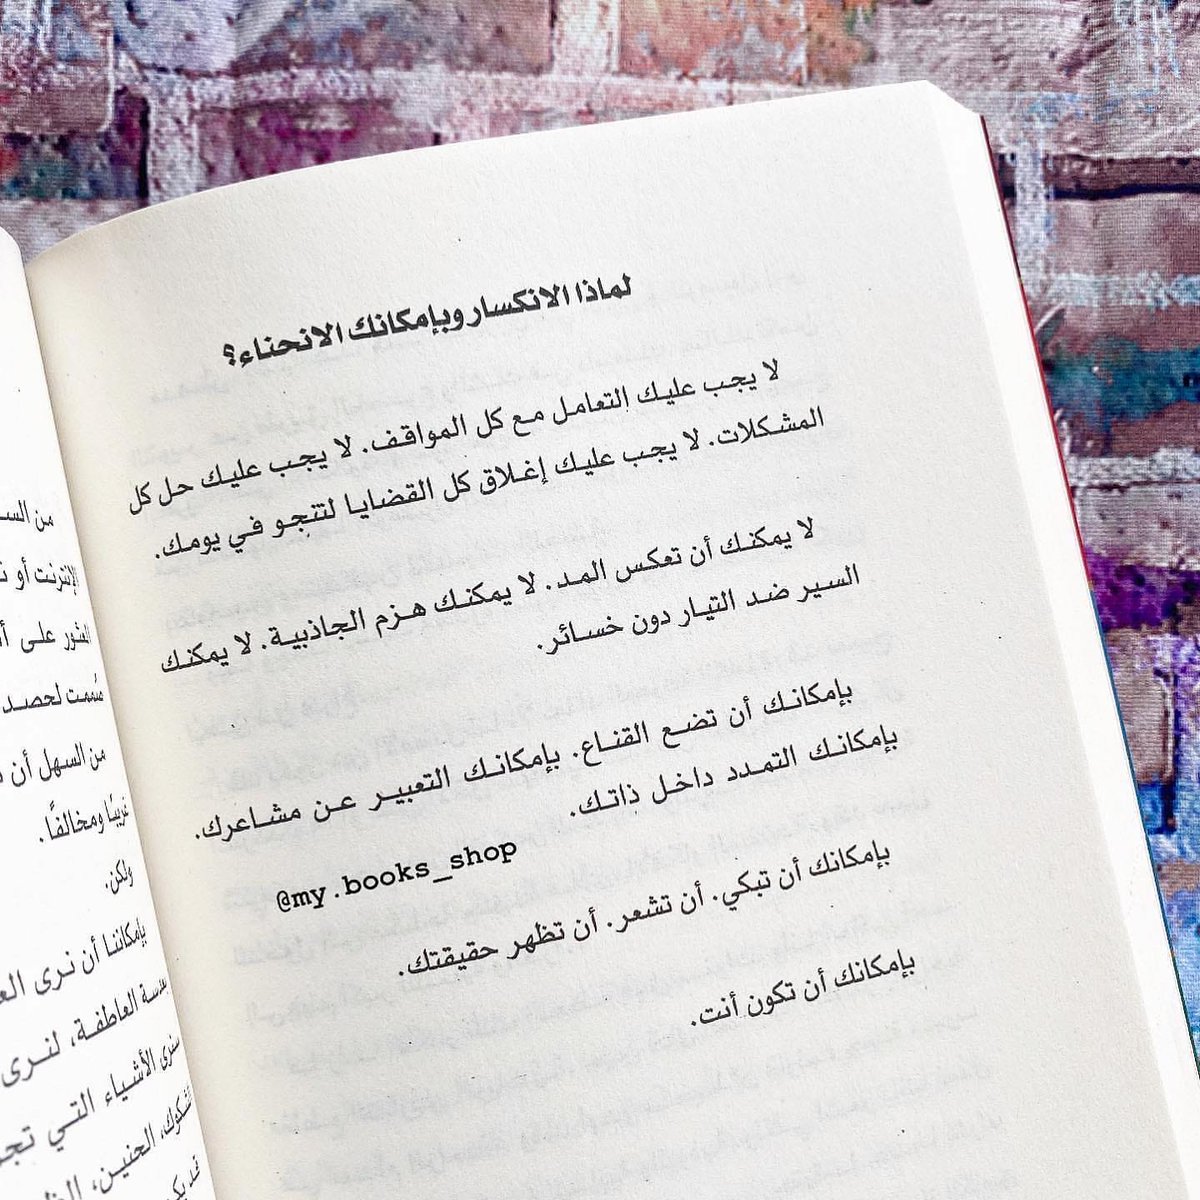 لماذا الانكسار وبإمكانك الانحناء؟
لا يجب عليك التعامل مع كل المواقف. لا يجب عليك حل كل
المشكلات. لا يجب عليك إغلاق كل القضايا لتنجو في يومك.
لا يمكنك أن تعكس المد. لا يمكنك هزم الجاذبية. لا يمكنك
السير ضد التيار دون خسائر.
بإمكانك أن تضع القناع. بإمكانك التعبير عن مشاعرك.
بإمكانك التمدد داخل ذاتك.
@my.books_shop
بإمكانك أن تبكي. أن تشعر. أن تظهر حقيقتك.
بإمكانك أن تكون أنت.
من
الإنترنت أو
العثور على
صُممت لحصد
من السهل أن
غريبًا ومخالفًا.
ولكن.
بإمكاننا أن نرى
بعدسة العاطفة، لنرى
سنرى الأشياء التي
الشكوك، الحنين،